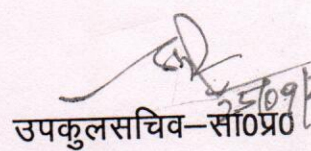 25/09/
उपकुलसचिव–सा0प्र0